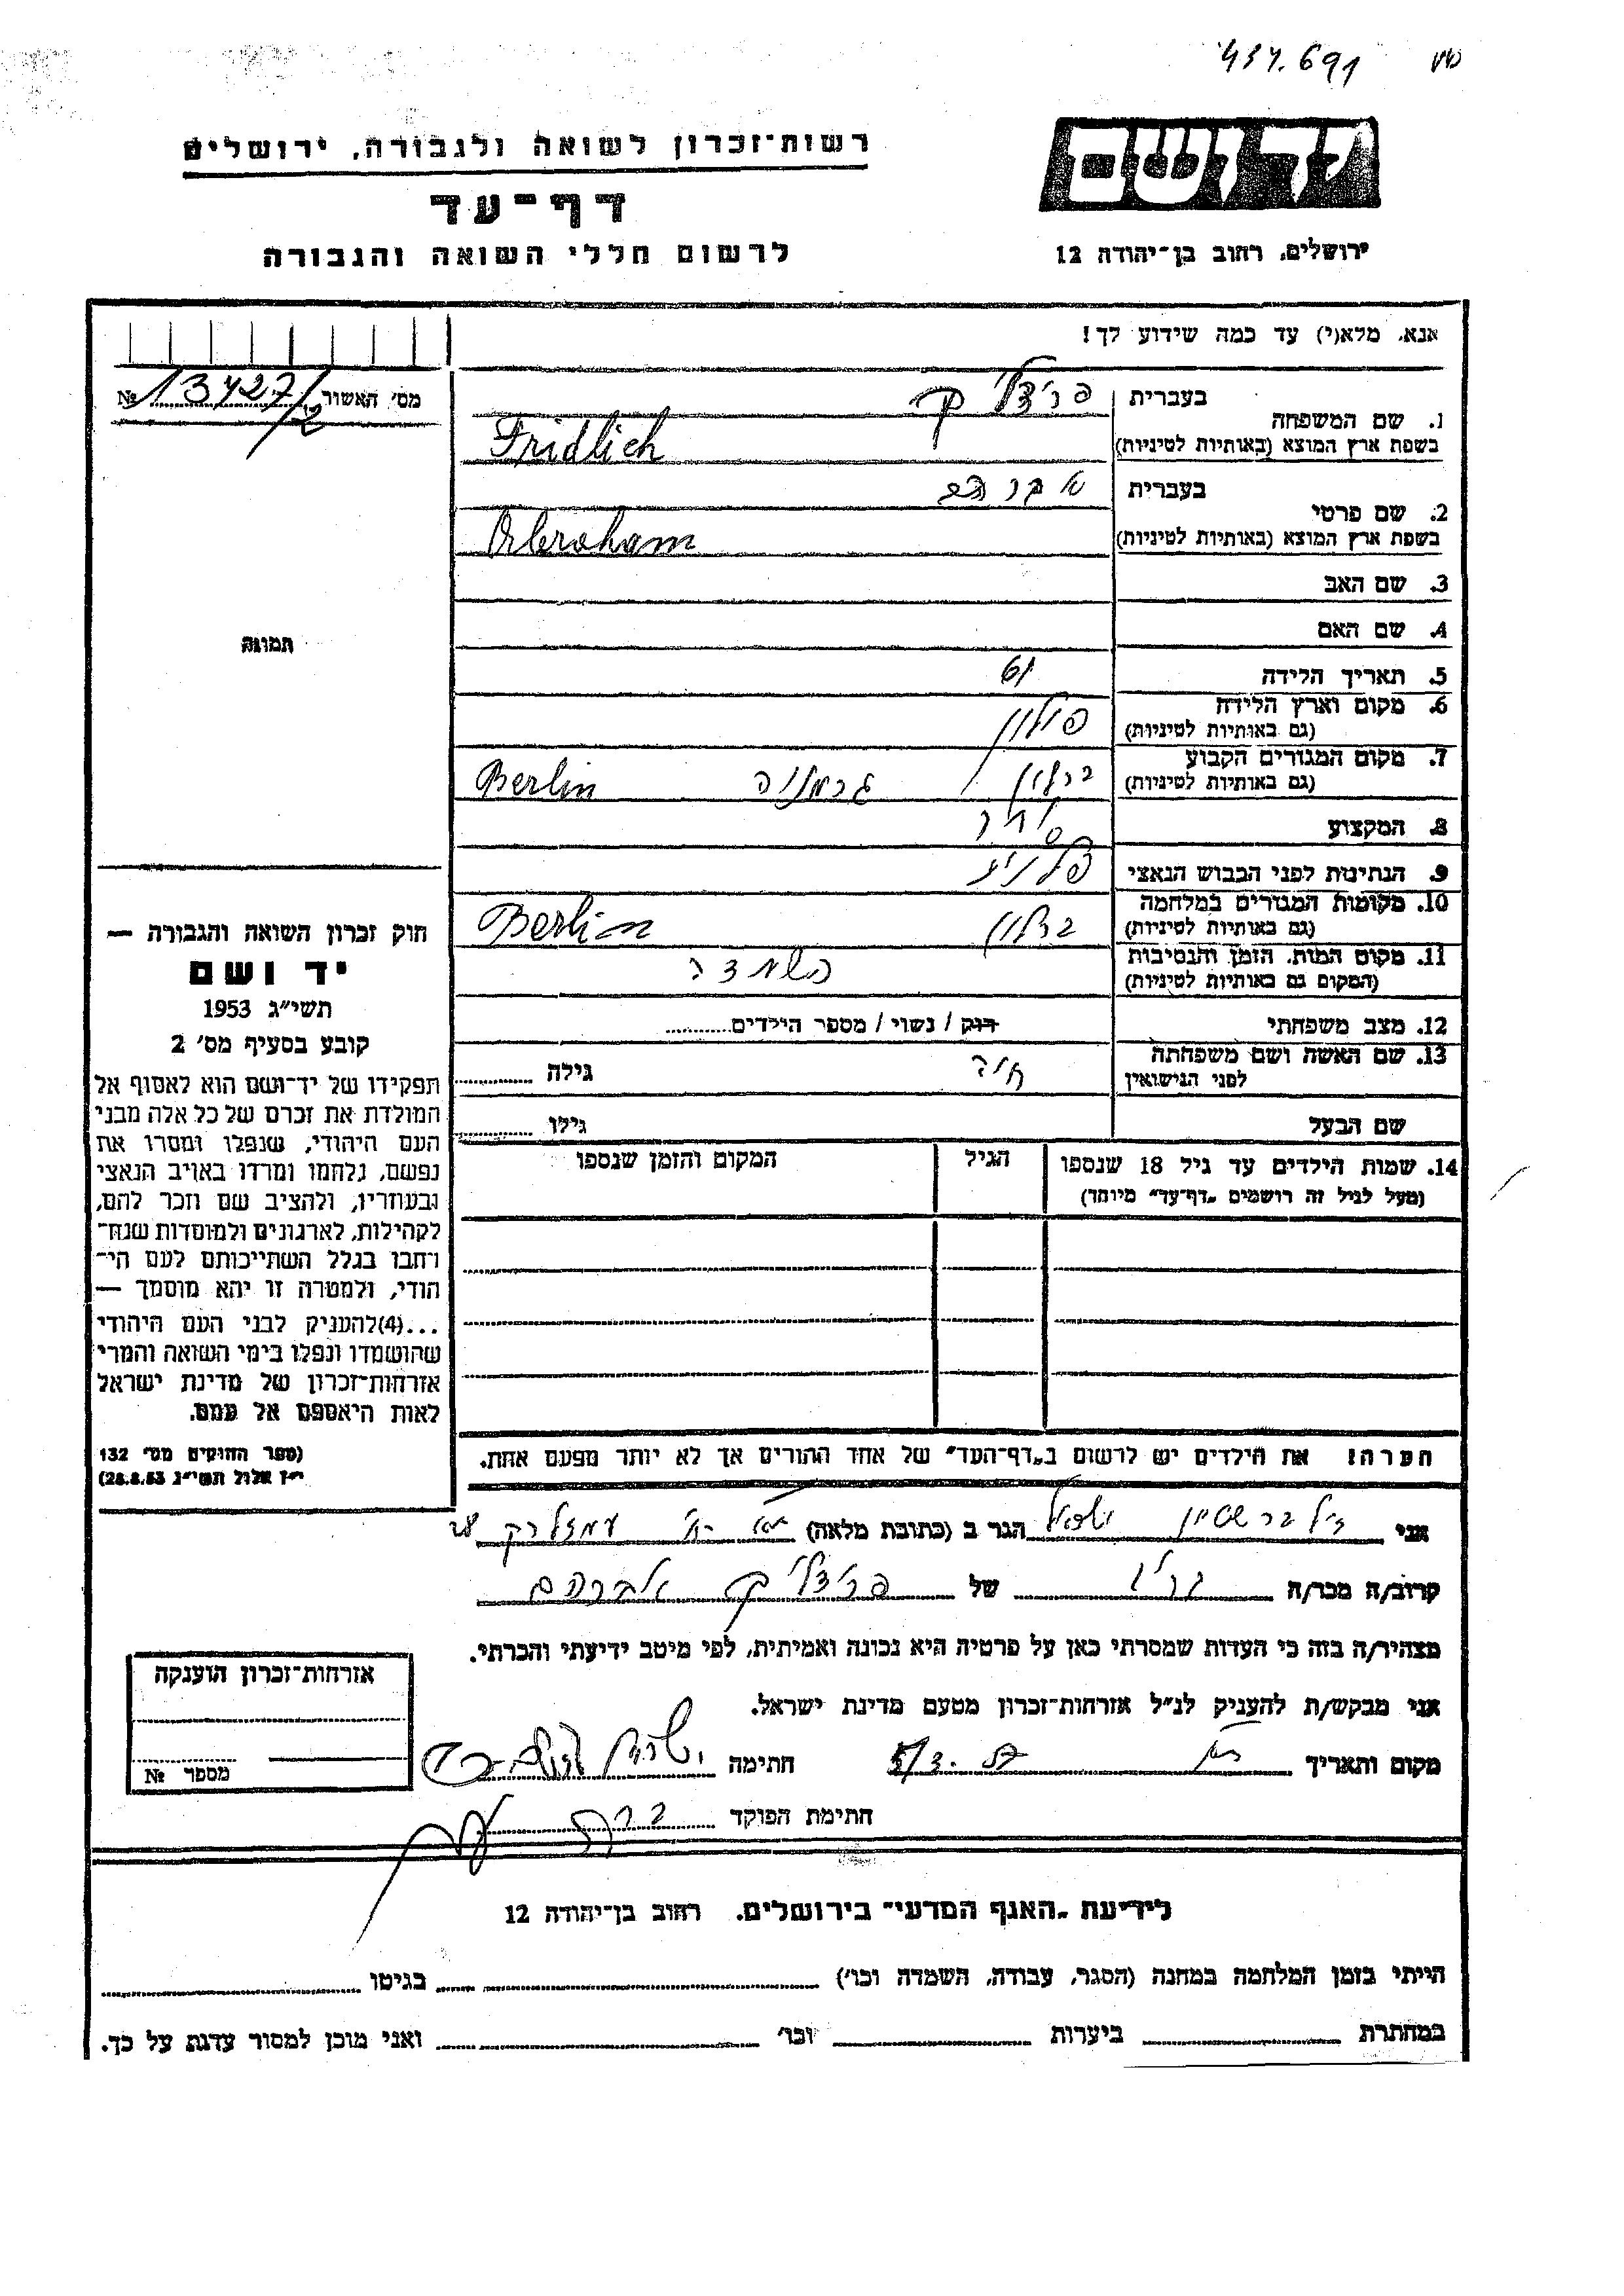 437.691
ידושם
רשות־זכרון לשואה ולגבורה, ירושלים
דף־עד
לרשום חללי השואה והגבורה
ירושלים, רחוב בן־יהודה 12
אנא, מלא(י) עד כמה שידוע לך!
מס׳ האשור 13427/2 №
1. שם המשפחה בעברית פרידליך
בשפת ארץ המוצא (באותיות לטיניות) Fridlich
2. שם פרטי בעברית אברהם
בשפת ארץ המוצא (באותיות לטיניות) Abraham
3. שם האב
4. שם האם
תמונה
5. תאריך הלידה 61
6. מקום וארץ הלידה פולין
(גם באותיות לטיניות)
7. מקום המגורים הקבוע ברלין גרמניה Berlin
(גם באותיות לטיניות)
8. המקצוע סוחר
9. הנתינות לפני הכבוש הנאצי
10. מקומות המגורים במלחמה ברלין Berlin
(גם באותיות לטיניות)
11. מקום המות, הזמן והנסיבות השמדה
(המקום גם באותיות לטיניות)
12. מצב משפחתי רוק / נשוי / מספר הילדים
13. שם האשה ושם משפחתה חיה גילה
לפני הנישואין
שם הבעל גילו
14. שמות הילדים עד גיל 18 שנספו הגיל המקום והזמן שנספו
(מעל לגיל זה רושמים „דף־עד” מיוחד)
חוק זכרון השואה והגבורה —
יד ושם
תשי״ג 1953
קובע בסעיף מס׳ 2
תפקידו של יד־ושם הוא לאסוף אל
המולדת את זכרם של כל אלה מבני
העם היהודי, שנפלו ומסרו את
נפשם, נלחמו ומרדו באויב הנאצי
ובעוזריו, ולהציב שם וזכר להם,
לקהילות, לארגונים ולמוסדות שנח־
רחבו בגלל השתייכותם לעם הי־
הודי, ולמטרה זו יהא מוסמך —
...(4)להעניק לבני העם היהודי
שהושמדו ונפלו בימי השואה והמרי
אזרחות־זכרון של מדינת ישראל
לאות היאספם אל עמם.
(ספר החוקים מס׳ 132
י״ז אלול תשי״ג 28.8.53)
הערה: את הילדים יש לרשום ב„דף־העד” של אחד ההורים אך לא יותר מפעם אחת.
אני זילברשטיין ישראל הגר ב (כתובת מלאה)
קרוב/ה מכר/ה של פרידליך אברהם
מצהיר/ה בזה כי העדות שמסרתי כאן על פרטיה היא נכונה ואמיתית, לפי מיטב ידיעתי והכרתי.
אני מבקש/ת להעניק לנ״ל אזרחות־זכרון מטעם מדינת ישראל.
מקום ותאריך חתימה
חתימת הפוקד
אזרחות־זכרון הוענקה
מספר №
לידיעת „האגף המדעי” בירושלים, רחוב בן־יהודה 12
הייתי בזמן המלחמה במחנה (הסגר, עבודה, השמדה וכו׳) בגיטו
במחתרת ביערות וכו׳ ואני מוכן למסור עדות על כך.